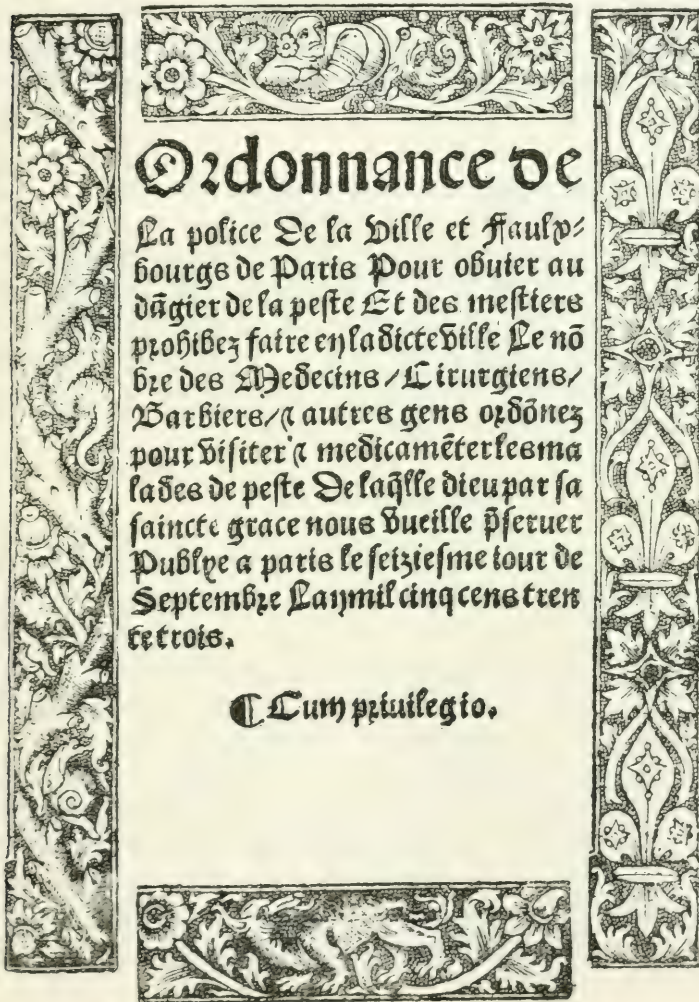 Ordonnance de
La police De la Ville et Faulx⸗
bourgs de Paris Pour obuier au
dāgier de la peste Et des mestiers
prohibez faire en ladicte ville Le nō
bre des Medecins/Cirurgiens/
Barbiers/⁊ autres gens ordōnez
pour visiter ⁊ medicamēter les ma
lades de peste De laq̄lle dieu par sa
saincte grace nous vueille p̄seruer
Publye a paris le seiziesme iour de
Septembre Lan mil cinq cens tren
te trois.
¶ Cum priuilegio.